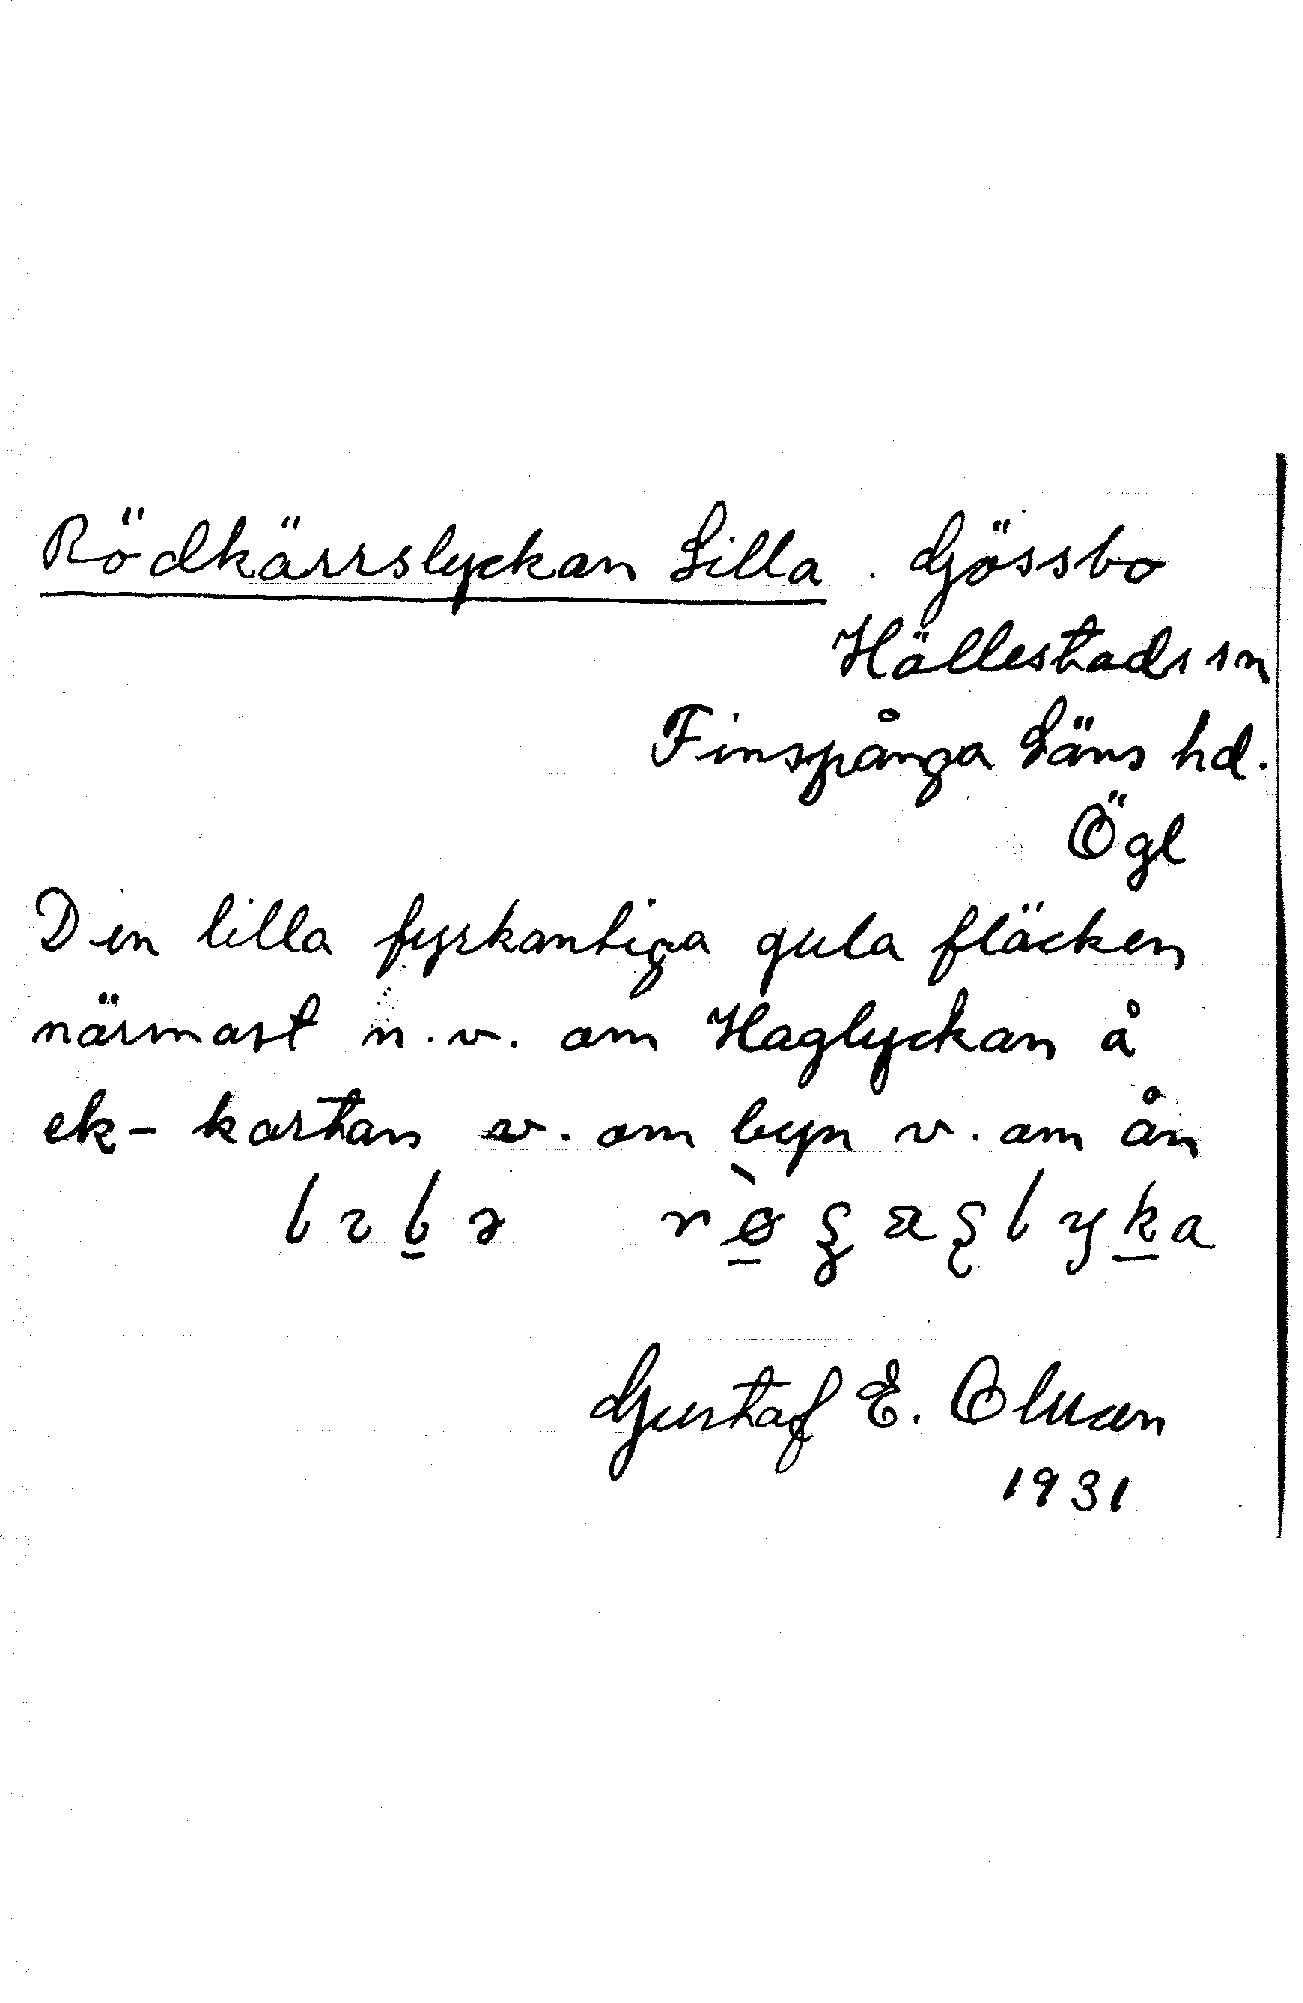 Rödkärrslyckan Lilla . Gössbo
Hällestads sn
Finspånga Läns hd.
Ögl
Den lilla fyrkantiga gula fläcken
närmast n.v. om Haglyckan å
ek-kartan v. om byn v. om ån
Gustaf E. Olsson
1931